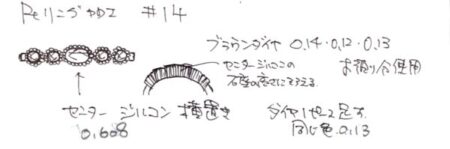 Peリング加工 #14
ブラウンダイヤ 0.14・0.12・0.13
センタージルコンの
お預り分使用
石座の高さにそろえる
センター ジルコン 横置き
0.608
ダイヤ1ヶ足す
同じ色 0.13